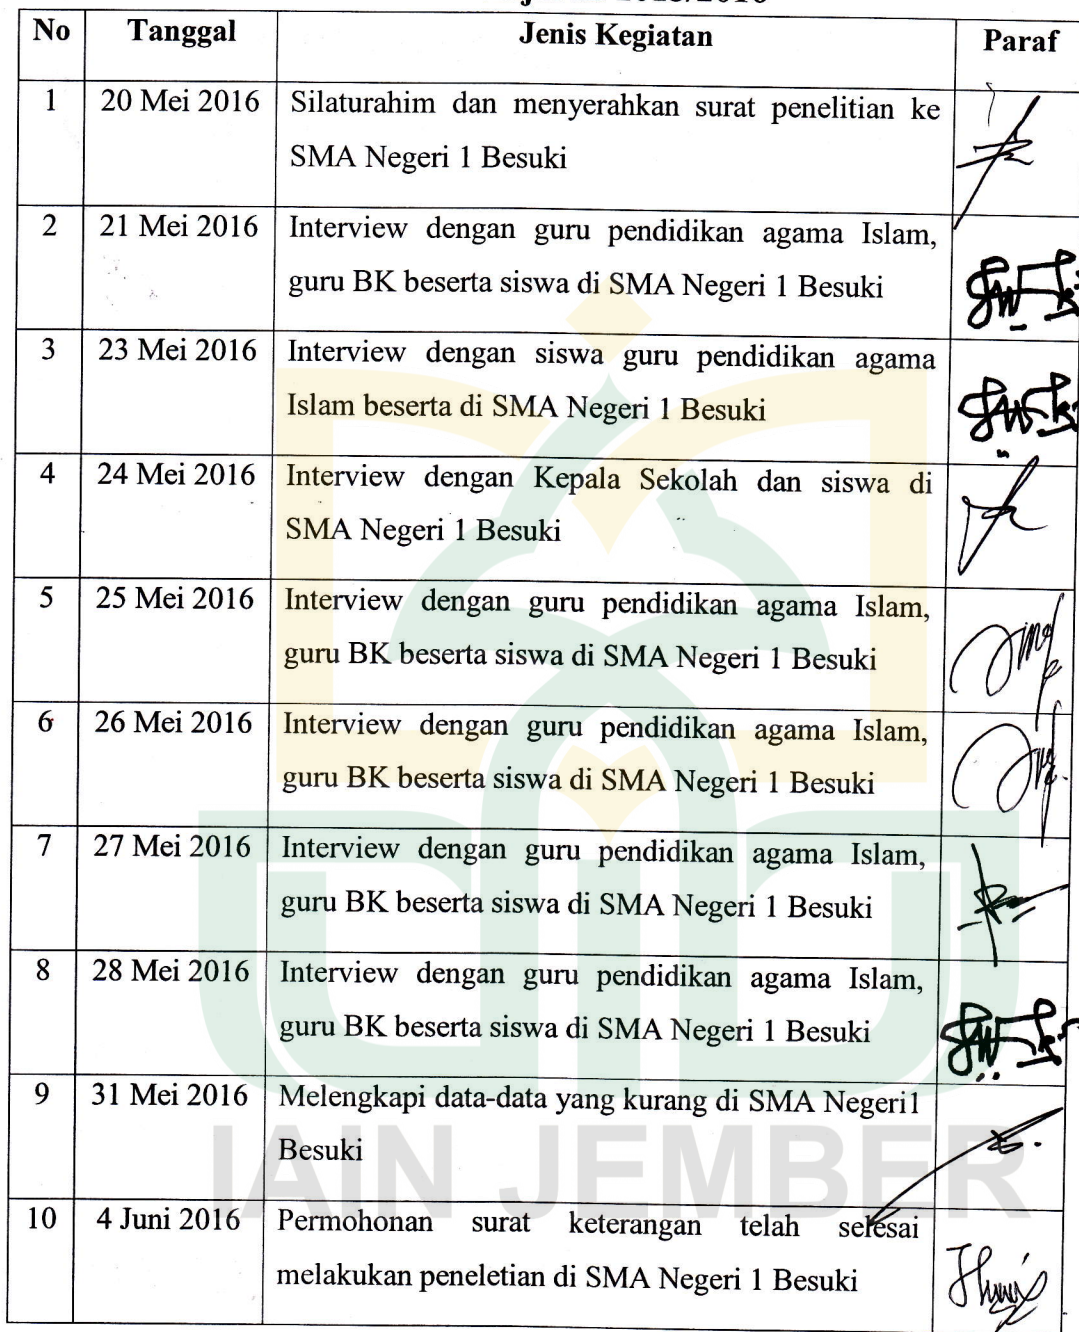 2015/2016
No Tanggal Jenis Kegiatan Paraf
1 20 Mei 2016 Silaturahim dan menyerahkan surat penelitian ke
SMA Negeri 1 Besuki
2 21 Mei 2016 Interview dengan guru pendidikan agama Islam,
guru BK beserta siswa di SMA Negeri 1 Besuki
3 23 Mei 2016 Interview dengan siswa guru pendidikan agama
Islam beserta di SMA Negeri 1 Besuki
4 24 Mei 2016 Interview dengan Kepala Sekolah dan siswa di
SMA Negeri 1 Besuki
5 25 Mei 2016 Interview dengan guru pendidikan agama Islam,
guru BK beserta siswa di SMA Negeri 1 Besuki
6 26 Mei 2016 Interview dengan guru pendidikan agama Islam,
guru BK beserta siswa di SMA Negeri 1 Besuki
7 27 Mei 2016 Interview dengan guru pendidikan agama Islam,
guru BK beserta siswa di SMA Negeri 1 Besuki
8 28 Mei 2016 Interview dengan guru pendidikan agama Islam,
guru BK beserta siswa di SMA Negeri 1 Besuki
9 31 Mei 2016 Melengkapi data-data yang kurang di SMA Negeri1
Besuki
IAIN JEMBER
10 4 Juni 2016 Permohonan surat keterangan telah selesai
melakukan peneletian di SMA Negeri 1 Besuki